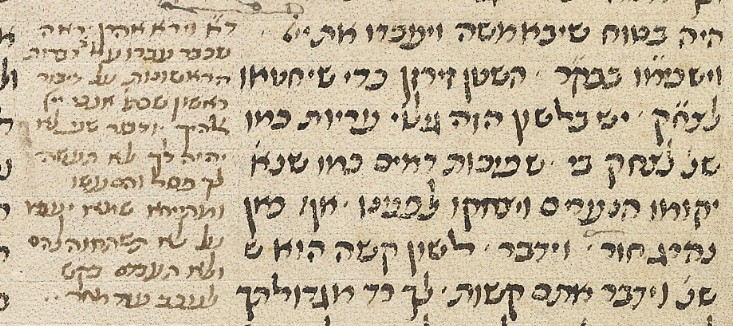 היה בטוח שיבא משה ויעבדו את
וישכימו בבקר . השטן זירזן כדי שיחטאו
לצחק . יש בלשון הזה גלוי עריות כמו
שנ' לצחק בי . שפיכות דמים כמו שנא'
יקומו הנערים וישחקו לפנינו . אף כאן
נהרג חור . וידבר . לשון קשה הוא
שנ' וידבר אתם קשות . לך רד מגדולתך
ד"א וירא אהרן ראה
שכבר עברו על דברות
הראשונות על דיבור
ראשון אנכי
שני לא
יהיה לך לא תעשה
לך פסל והם עשו
על לא תשתחוה להם
ולא תעבדם בקש
לעכב עוד